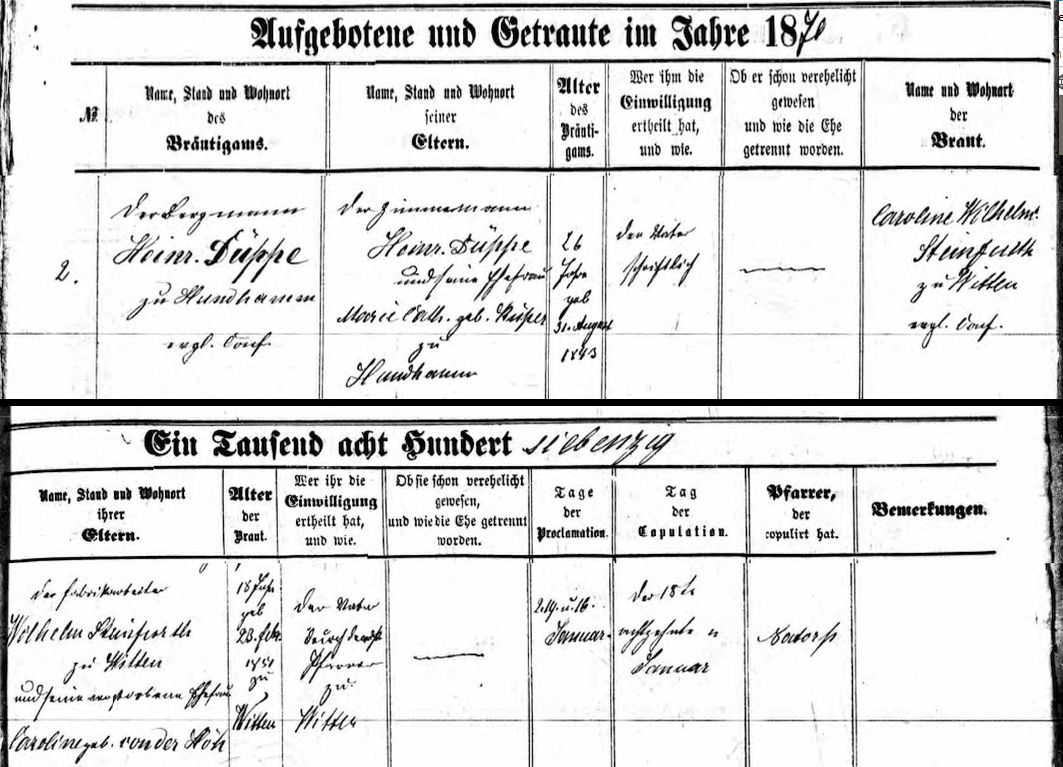 Aufgebotene und Getraute im Jahre 1870
№
Name, Stand und Wohnort
des
Bräutigams.
Name, Stand und Wohnort
seiner
Eltern.
Alter
des
Bräuti-
gams.
Wer ihm die
Einwilligung
ertheilt hat,
und wie.
Ob er schon verehelicht
gewesen
und wie die Ehe
getrennt worden.
Name und Wohnort
der
Braut.
2.
Der Bergmann
Heinr. Düppe
zu Hundhamm
evgl. Conf.
Der Zimmermann
Heinr. Düppe
und seine Ehefrau
Marie Cath. geb.
zu
Hundhamm
26
Jahre
geb
31. August
1843
der Vater
schriftlich
Caroline Wilhelm.
Steinfurth
zu Witten
evgl. Conf.
Ein Tausend acht Hundert siebenzig
Name, Stand und Wohnort
ihrer
Eltern.
Alter
der
Braut.
Wer ihr die
Einwilligung
ertheilt hat,
und wie.
Ob sie schon verehelicht
gewesen,
und wie die Ehe getrennt
worden.
Tage
der
Proclamation.
Tag
der
Copulation.
Pfarrer,
der
copulirt hat.
Bemerkungen.
der Fabrikarbeiter
Wilhelm Steinfurth
zu Witten
und seine verstorbene Ehefrau
Caroline geb. von der Höh
18 Jahr
geb
28. Febr.
1851
zu
Witten
der Vater
Pfarrer
zu
Witten
2. 9. u. 16.
Januar
Den 18te
achtzehnten
Januar
Natorp